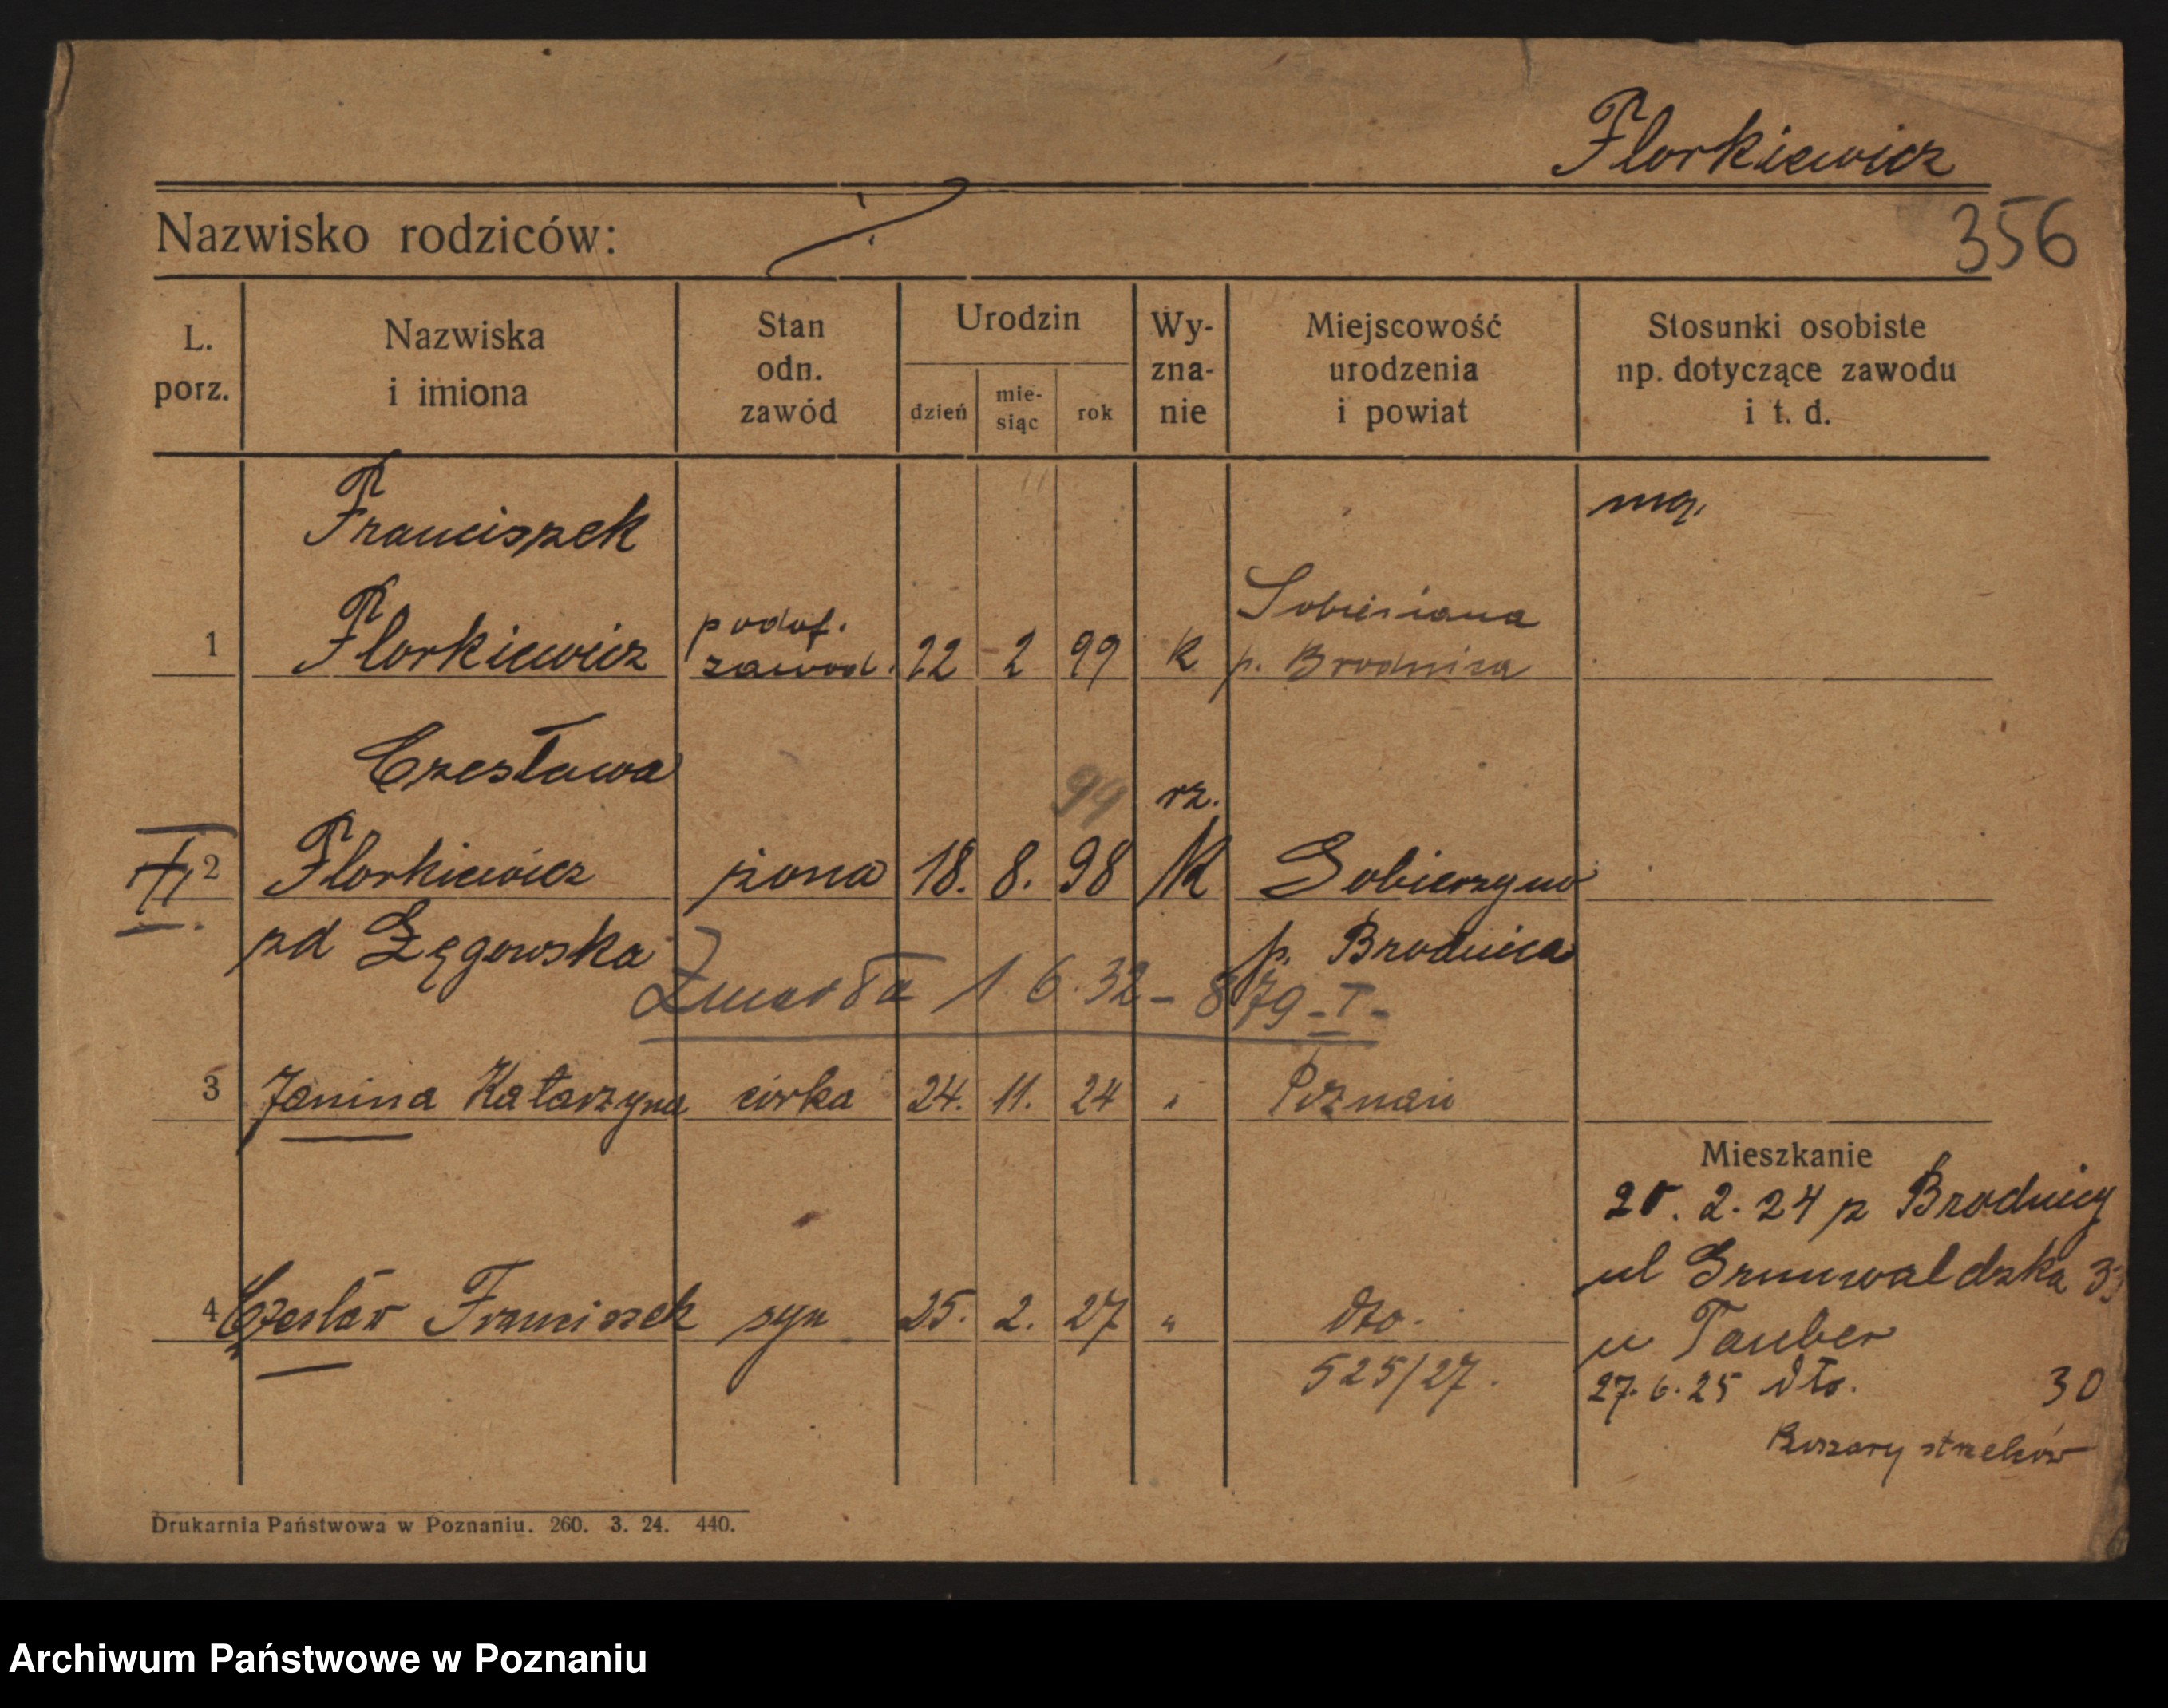 Florkiewicz
356
Nazwisko rodziców:
L. porz.
Nazwiska i imiona
Stan odn. zawód
Urodzin
dzień
mie- siąc
rok
Wy- zna- nie
Miejscowość urodzenia i powiat
Stosunki osobiste np. dotyczące zawodu i t. d.
Franciszek
1 Florkiewicz podof. zawod. 22 2 99 k p. Brodnica
Czesława
99 rz.
2 Florkiewicz żona 18. 8. 98 K Sobierzyno
zd Zęgowska p. Brodnica
Zmarła 1 6. 32 - 879 - I -
3 Janina Katarzyna córka 24. 11. 24 " Poznań
Mieszkanie
20. 2. 24 z Brodnicy
ul Grunwaldzka 33
4 Czesław Franciszek syn 25. 2. 27 " dto.
u Tauber
525/27.
27. 6. 25 dto. 30
Koszary strzelców
Drukarnia Państwowa w Poznaniu. 260. 3. 24. 440.
Archiwum Państwowe w Poznaniu